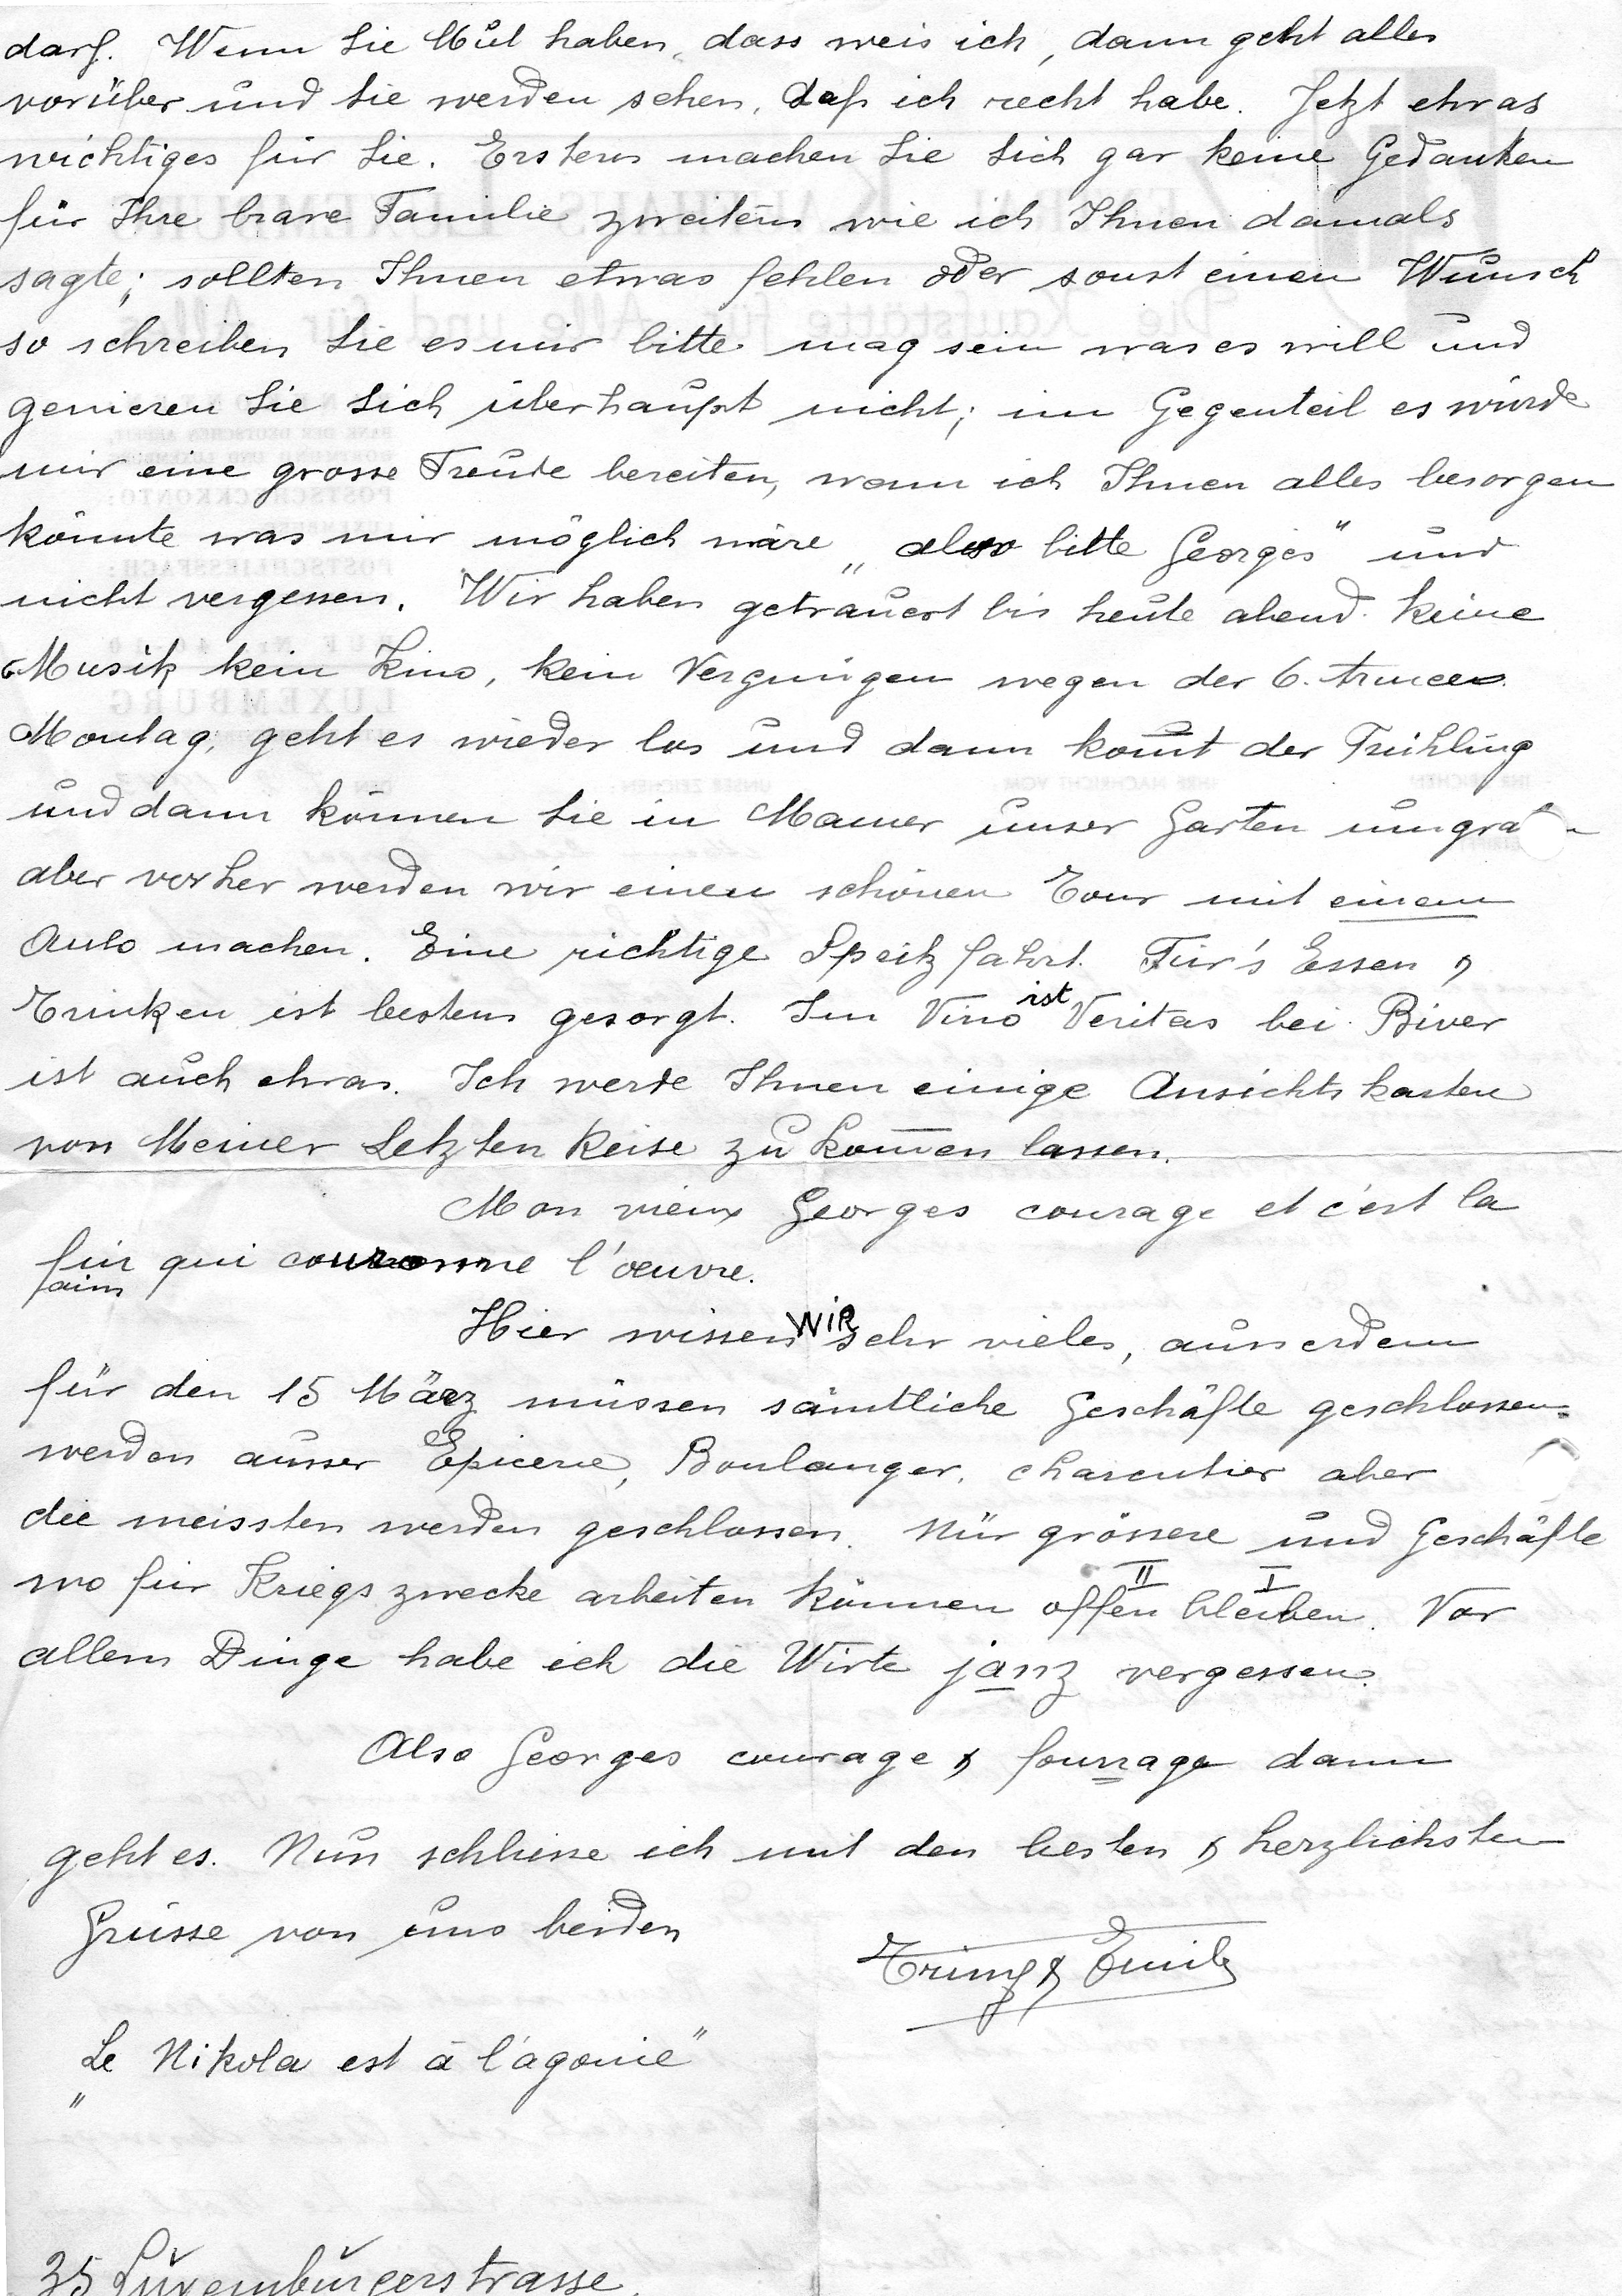 darf. Wenn Sie Mut haben, dass weis ich, dann geht alles
vorüber und Sie werden sehen, daß ich recht habe. Jetzt etwas
wichtiges für Sie. Erstens machen Sie Sich gar keine Gedanken
für Ihre brave Familie zweitens wie ich Ihnen damals
sagte; sollten Ihnen etwas fehlen oder sonst einen Wunsch
so schreiben Sie es mir bitte mag sein was es will und
genieren Sie Sich überhaupt nicht; im Gegenteil es würde
mir eine grosse Freude bereiten, wenn ich Ihnen alles besorgen
könnte was mir möglich wäre „also bitte Georges" und
nicht vergessen. Wir haben getrauert bis heute abend. Keine
Musik kein Kino, kein Vergnügen wegen der 6. Armee.
Montag, geht es wieder los und dann kom̄t der Frühling
und dann können Sie in Mamer unser Garten umgra
aber vorher werden wir einen schönen Tour mit einem
Auto machen. Eine richtige Spritzfahrt. Für's Essen &
Trinken ist bestens gesorgt. Im Vino ist Veritas bei Biver
ist auch etwas. Ich werde Ihnen einige Ansichtskarten
von Meiner Letzten Reise zu kom̄en lassen.
Mon vieux Georges courage et c'est la
fin qui couronne l'œuvre.
faim
Hier wissen WIR sehr vieles, ausserdem
für den 15 März müssen sämtliche Geschäfte geschlossen
werden ausser Epicerie, Boulanger, charcutier aber
die meissten werden geschlossen. Nur grössere und Geschäfte
wo für Kriegszwecke arbeiten können offen bleiben. Vor
II I
allem Dinge habe ich die Wirte janz vergessen.
Also Georges courage & fourrage dann
geht es. Nun schliesse ich mit den besten & herzlichsten
Grüsse von uns beiden
& Emile
„Le Nikola est à l'agonie"
35 Luxemburgerstrasse